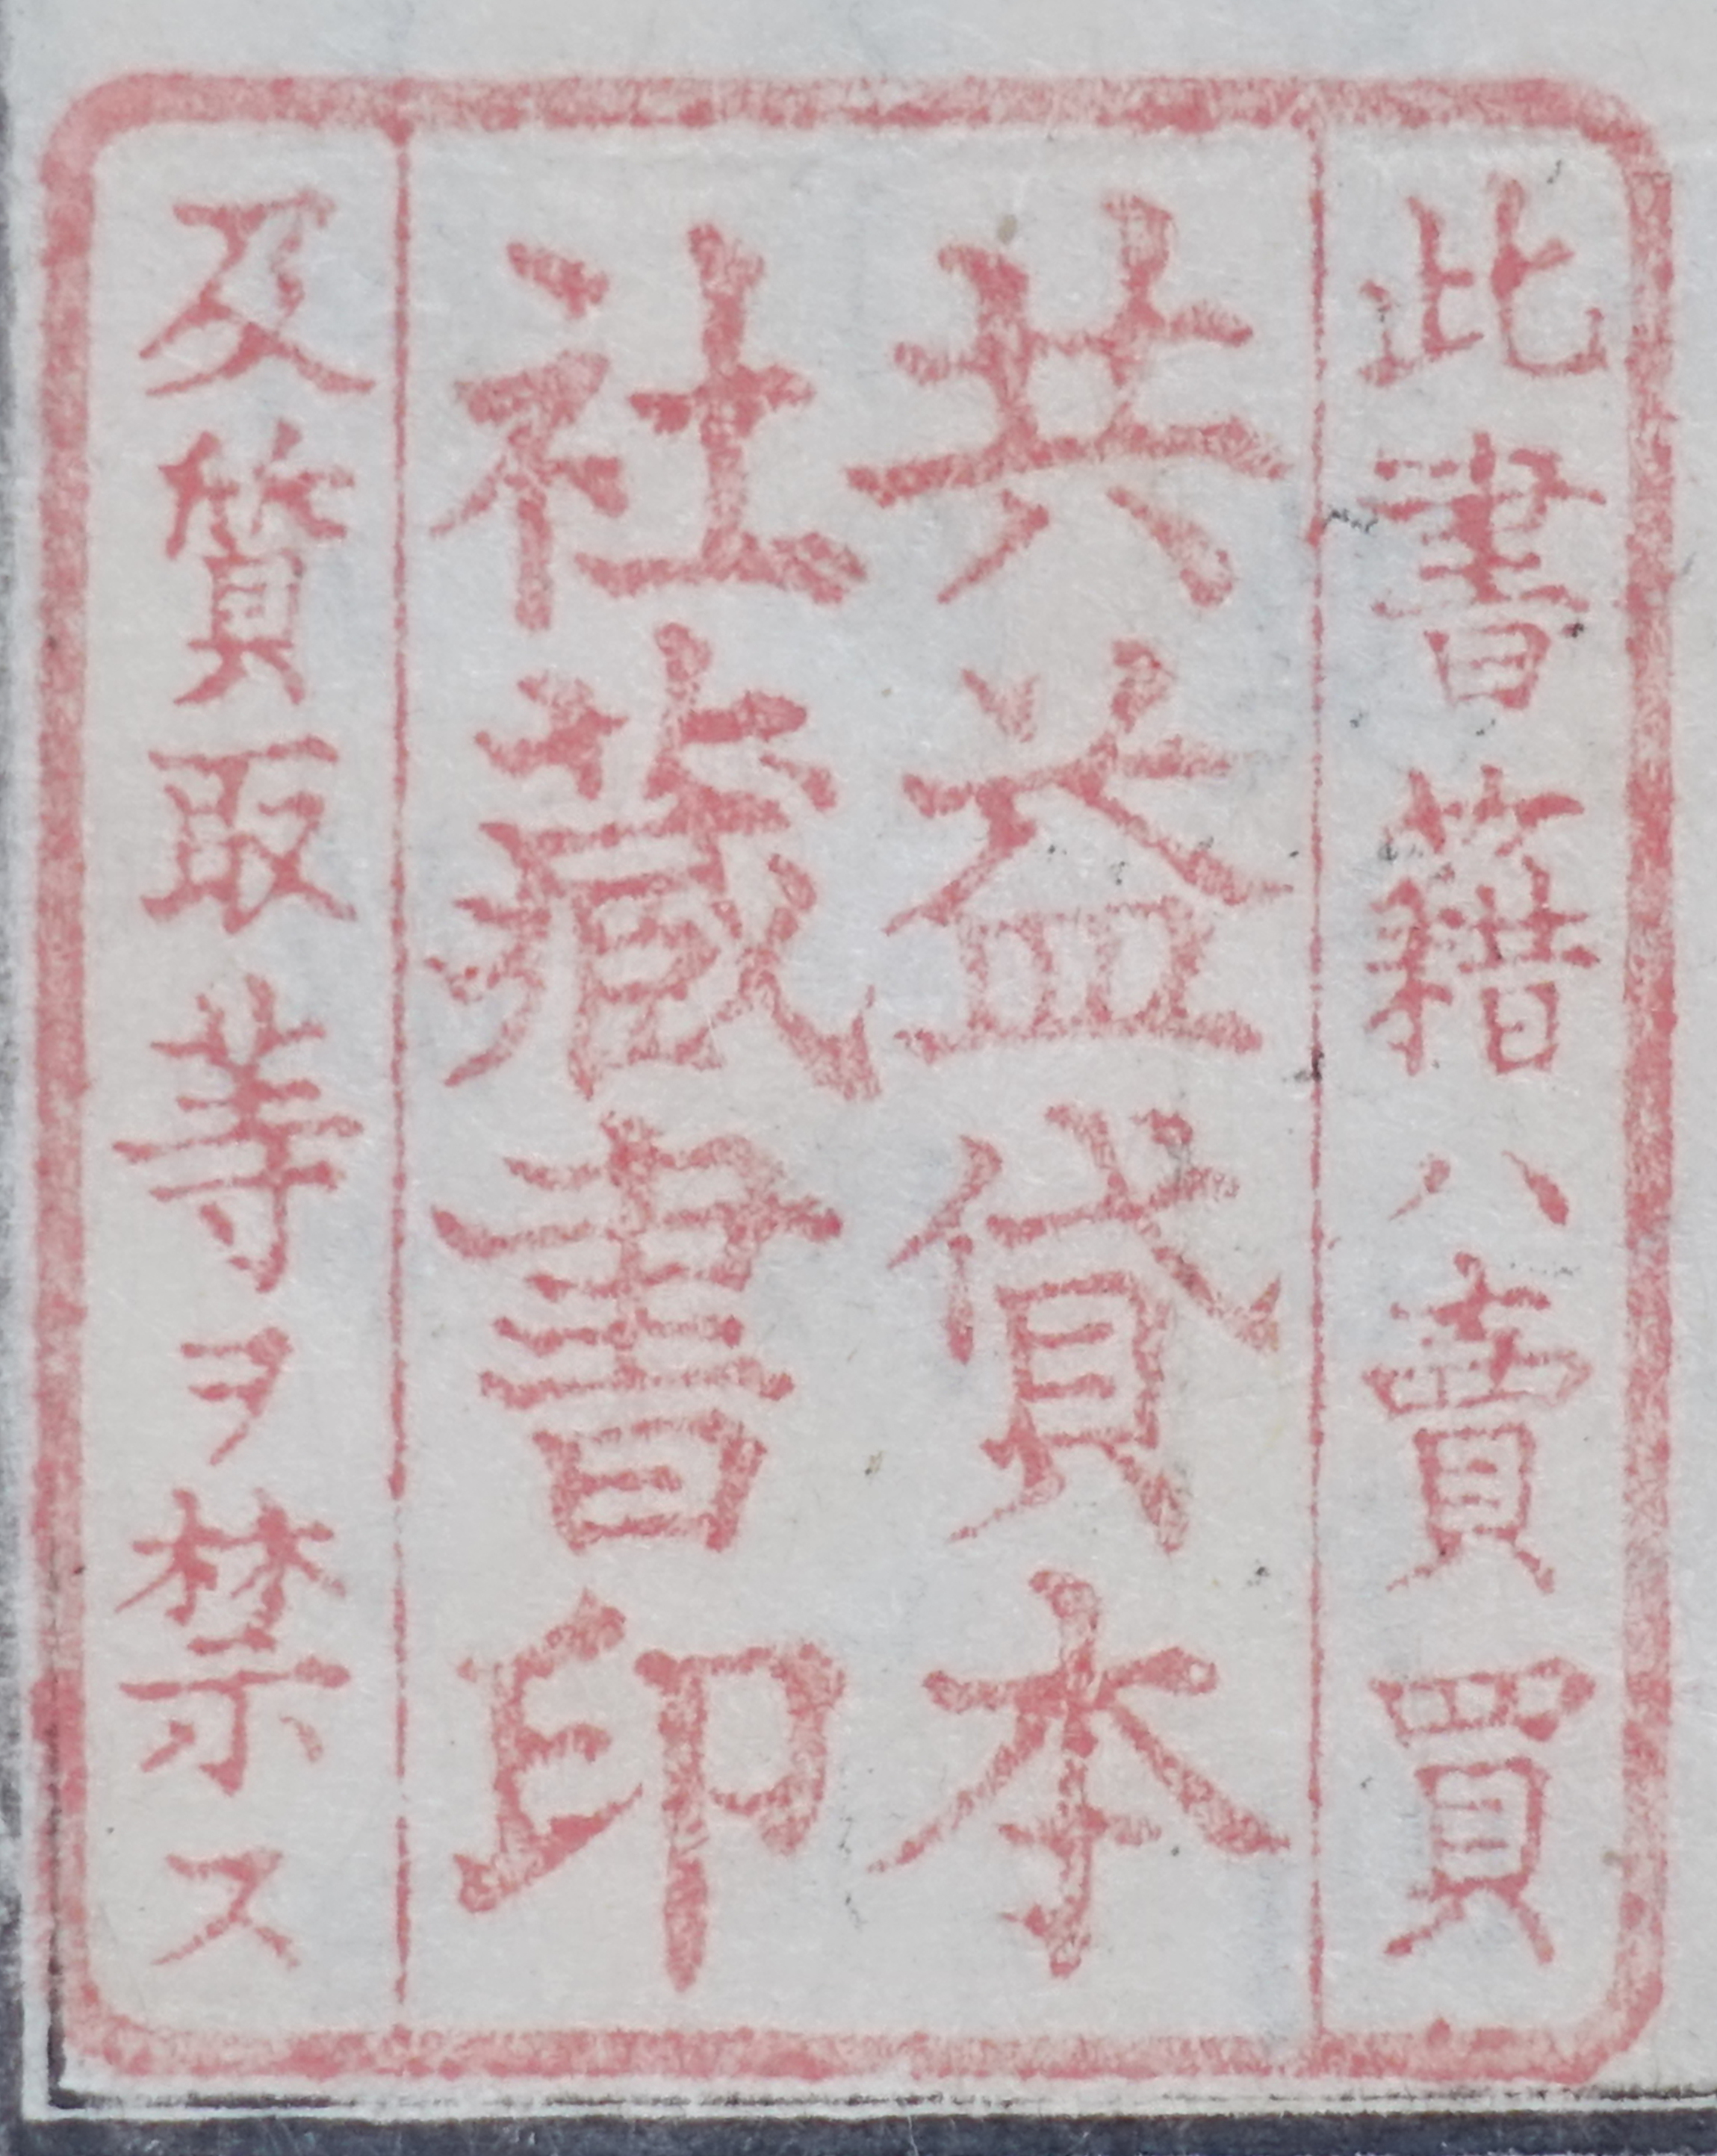 此書籍ハ賣買
共益貸本
社藏書印
及質取等ヲ禁ス